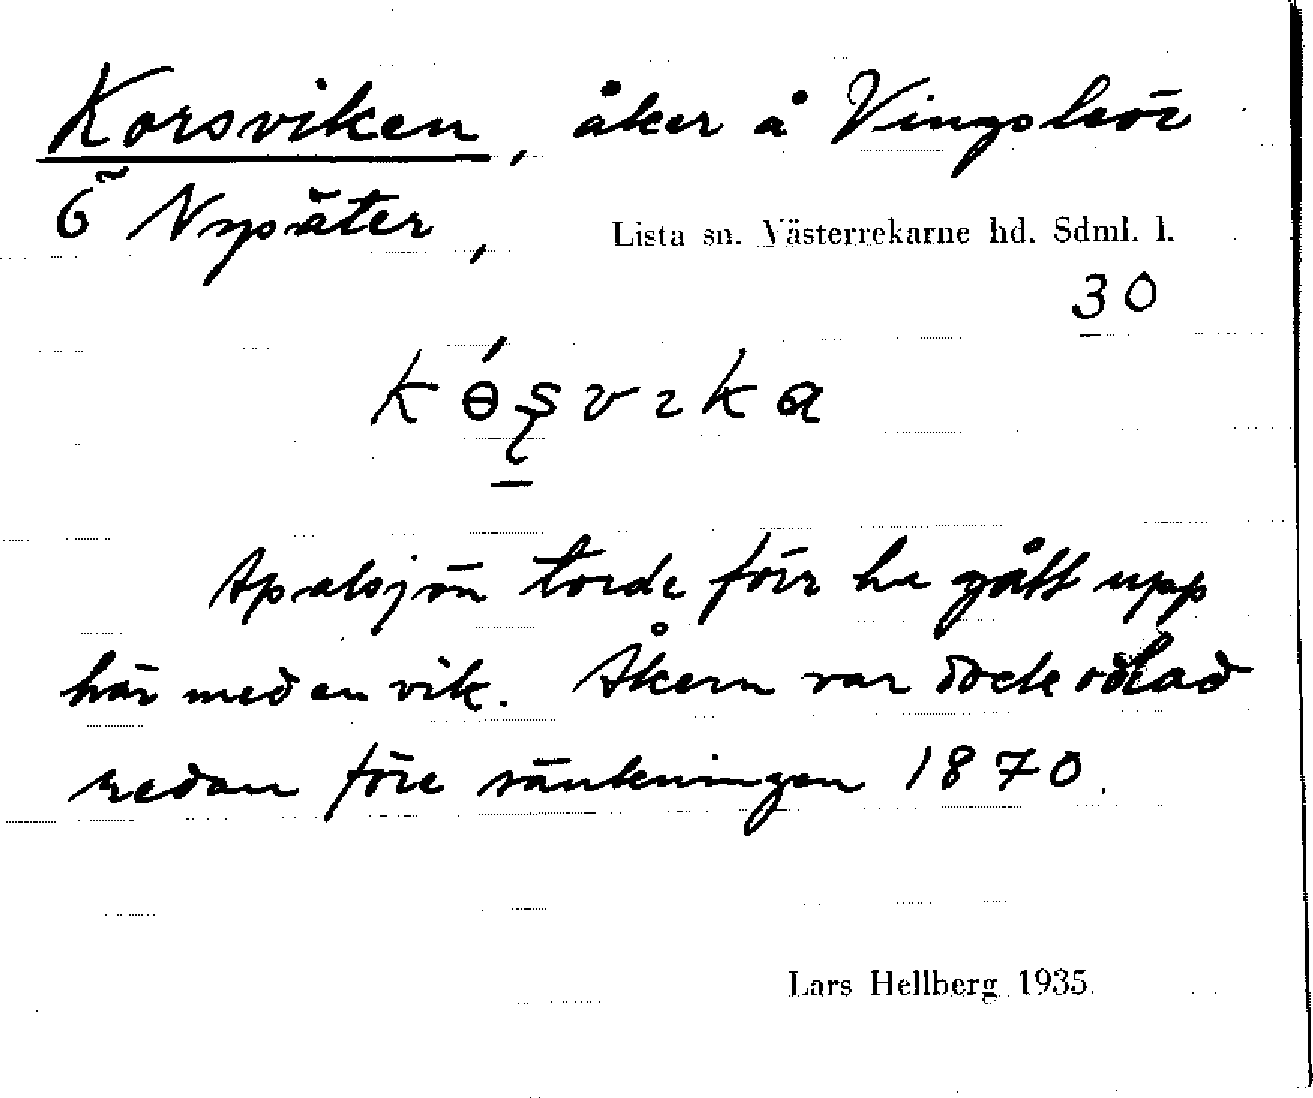 Korsviken, åker å Vingsleör
Õ Nysäter, Lista sn. Västerrekarne hd. Sdml. l.
30
kɵ́ʂvɪka
Apalsjön torde förr ha gått upp
här med en vik. Åkern var dock odlad
redan före sänkningen 1870.
Lars Hellberg 1935